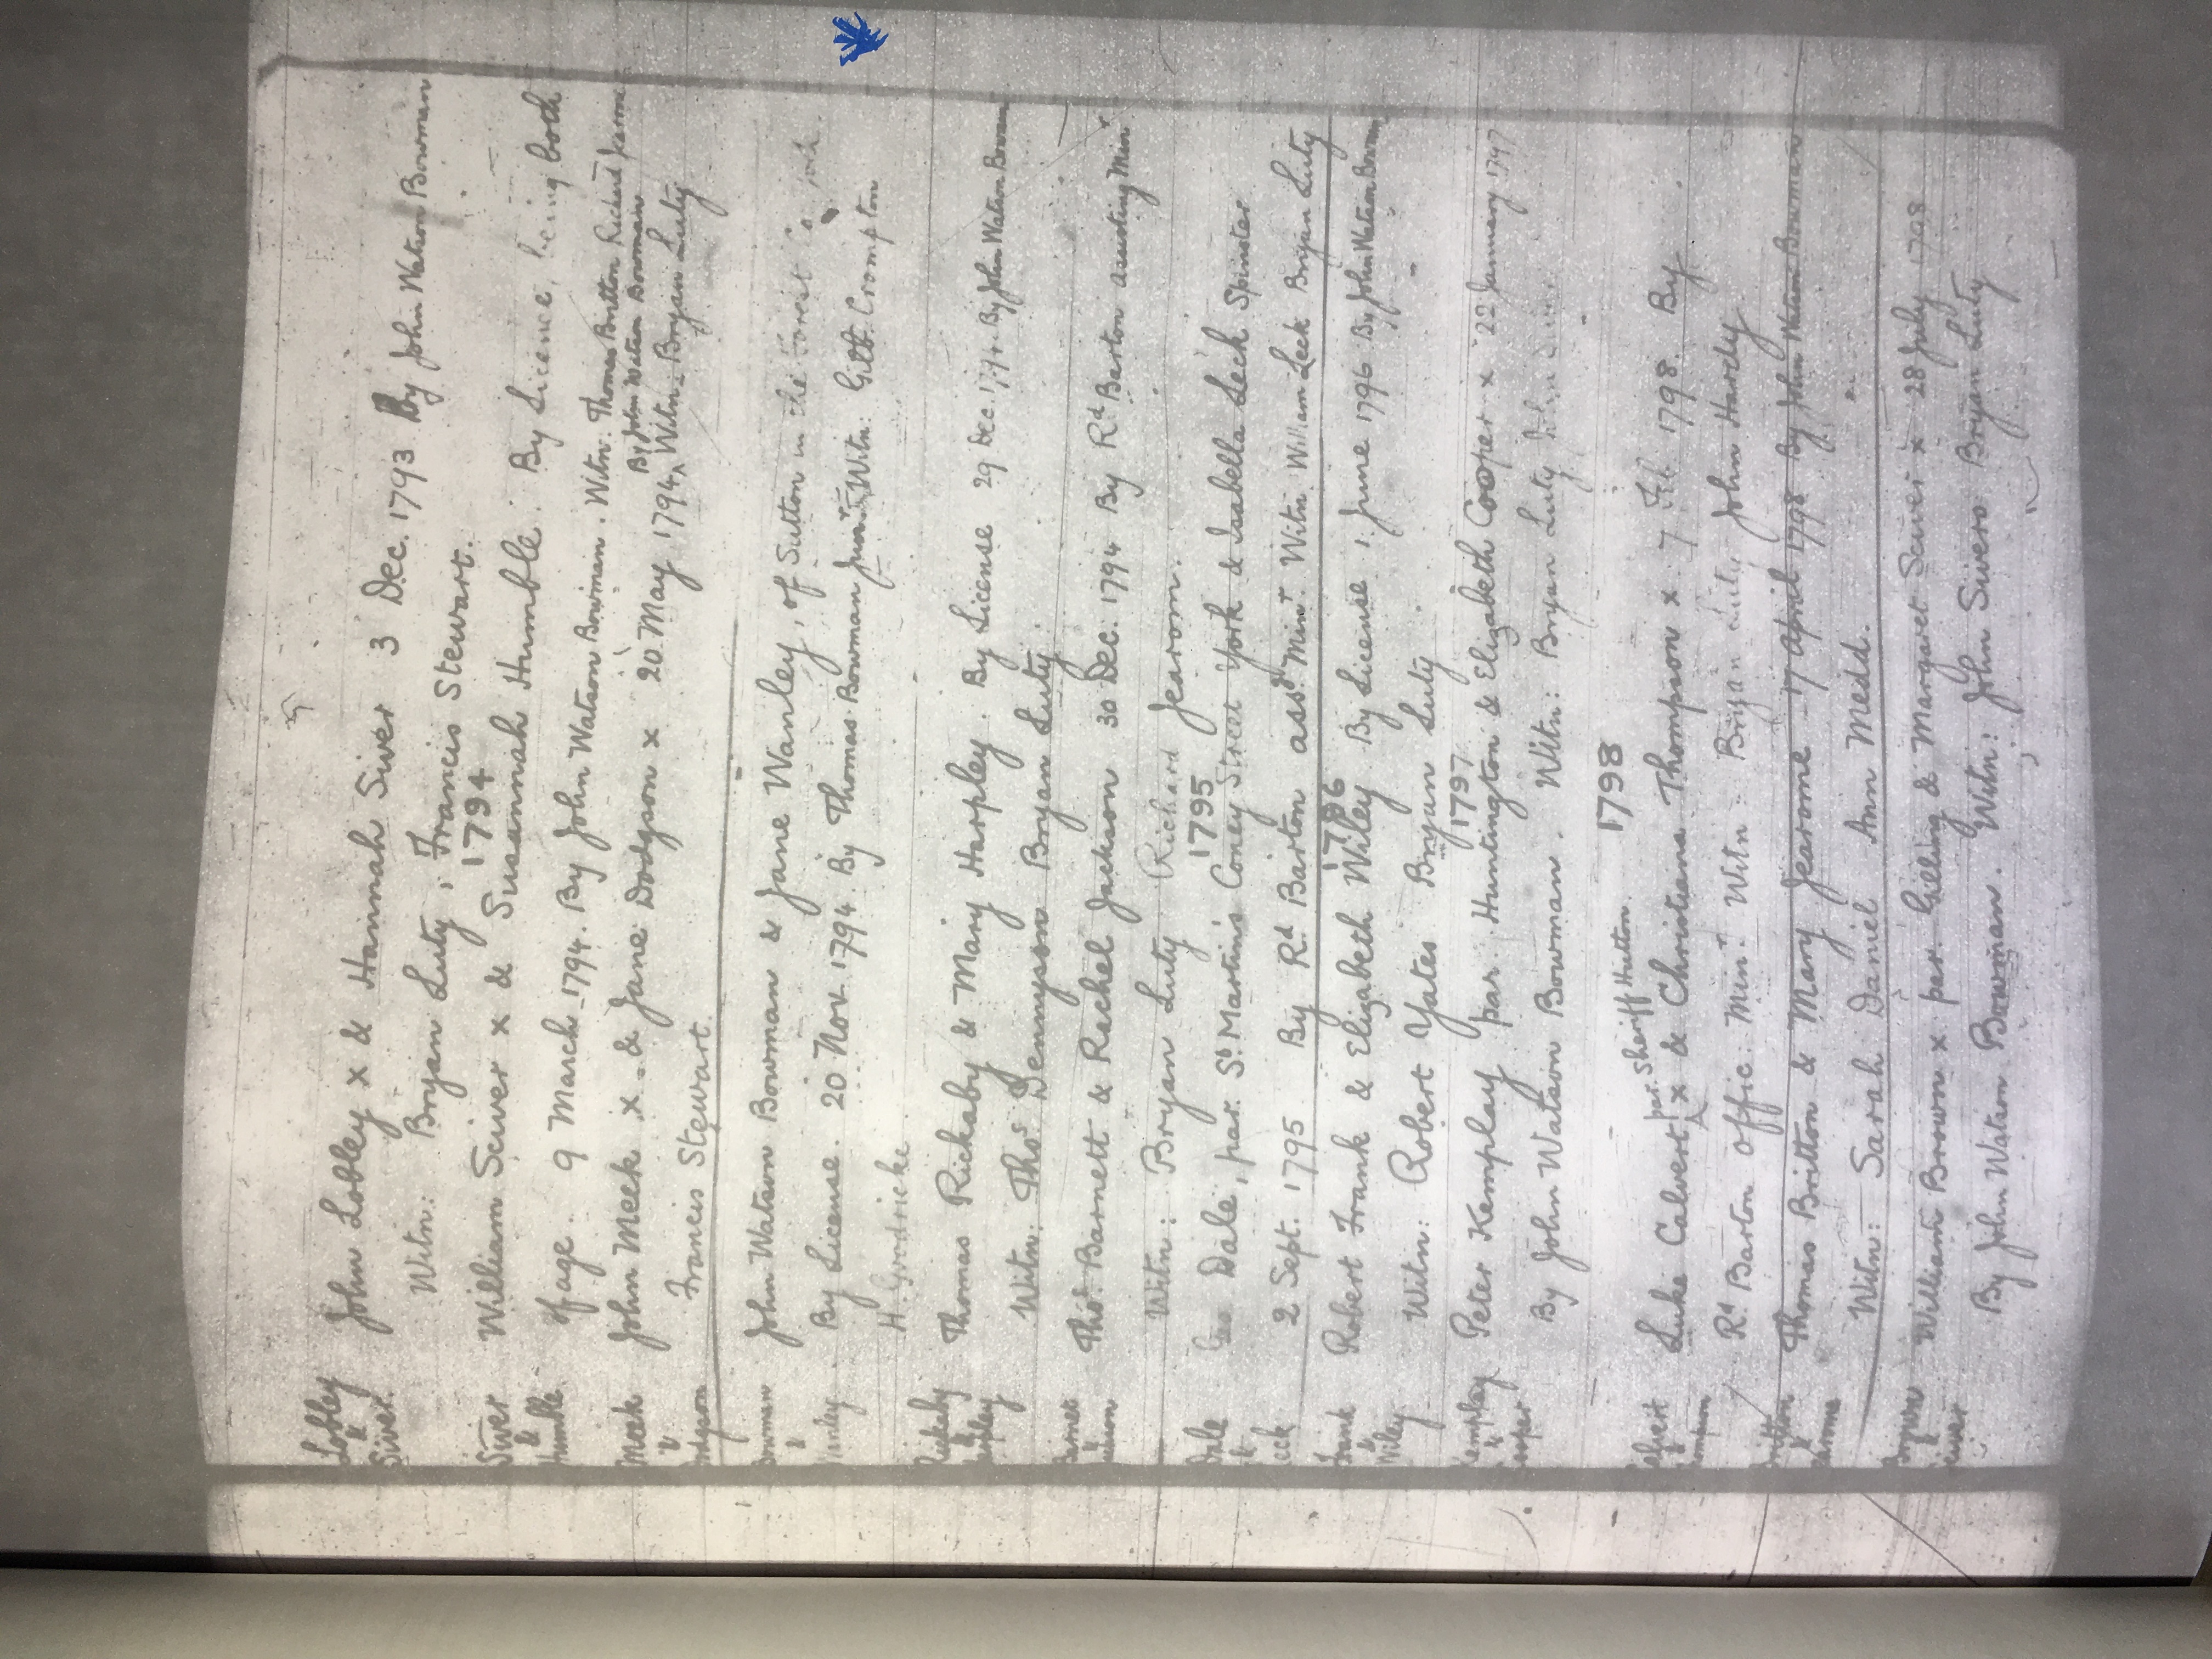 Lobley & Siver
John Lobley x & Hannah Siver 3 Dec. 1793 By John Watson Bowman
Witn: Bryan Luty, Francis Stewart.
1794
Siver & Humble
William Siver x & Susannah Humble. By Licence, being both
of age. 9 March 1794. By John Watson Bowman. Witn: Thomas Britton Richard Jerome
Meek & Dodgson
John Meek x & Jane Dodgson x 20 May 1794 ^ By John Watson Bowman Witn. Bryan Luty
Francis Stewart.
Bowman & Wanley
John Watson Bowman & Jane Wanley, of Sutton in the Forest Co York.
By License. 20 Nov. 1794. By Thomas Bowman Junr. Witn: Gilbt. Crompton
H. Goodricke
Rickaby & Harpley
Thomas Rickaby & Mary Harpley. By License 29 Dec. 1794. By John Watson Bowman
Witn: Thos Dennyson Bryan Luty
Barnett &
Thos. Barnett & Rachel Jackson 30 Dec. 1794 By Rd Barton assisting Minr
Witn: Bryan Luty Richard Jearom.
1795
Dale & Leck
Geo Dale, par. St. Martin's Coney Street York & Isabella Leck Spinster
2 Sept. 1795 By Rd. Barton asst. Minr. Witn. William Leck Bryan Luty
1796
Frank & Wiley
Robert Frank & Elizabeth Wiley By License 1. June 1796 By John Watson Bowman
Witn: Robert Yates Bryan Luty
1797
Kemplay & Cooper
Peter Kemplay par. Huntington & Elizabeth Cooper x 22 January 1797
By John Watson Bowman. Witn: Bryan Luty John
1798
Calvert &
Luke Calvert ^ par. Sheriff Hutton. x & Christiana Thompson x 7 Feb 1798. By
Rd. Barton offic. Minr. Witn: Bryan Luty John Hardy
Britton & Jearome
Thomas Britton & Mary Jearome 17 April 1798 By John Watson Bowman
Witn: Sarah Daniel Ann Medd.
Brown &
William Brown x par. Gilling & Margaret Siver x 28 July 1798
By John Watson Bowman. Witn: John Sivers Bryan Luty